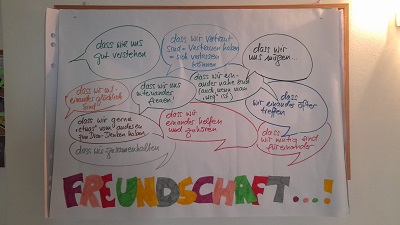 dass wir uns
gut verstehen
dass wir vertraut
sind = Vertrauen haben
= sich verlassen
können
dass wir
uns mögen...
dass wir mit-
einander glücklich
sind
dass wir uns
miteinander
freuen!
dass wir ein-
ander nahe sind
(auch wenn man
"weg" ist)
dass
wir einander öfter
treffen
dass wir gerne
"etwas" vom anderen
zum Denken haben
dass wir
einander helfen
und zuhören
dass
wir wichtig sind
füreinander
dass wir zusammenhalten
FREUNDSCHAFT...!